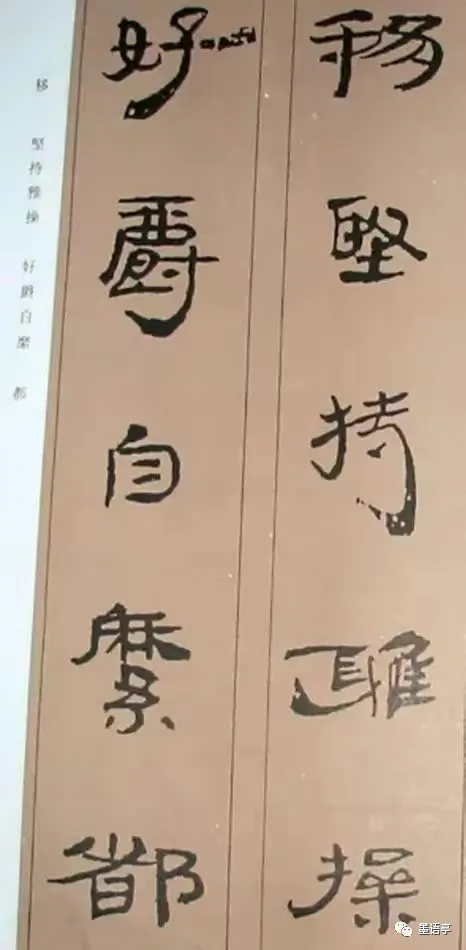 移堅持雅操
好爵自縻都
移 堅持雅操 好爵自縻 都
墨语亭